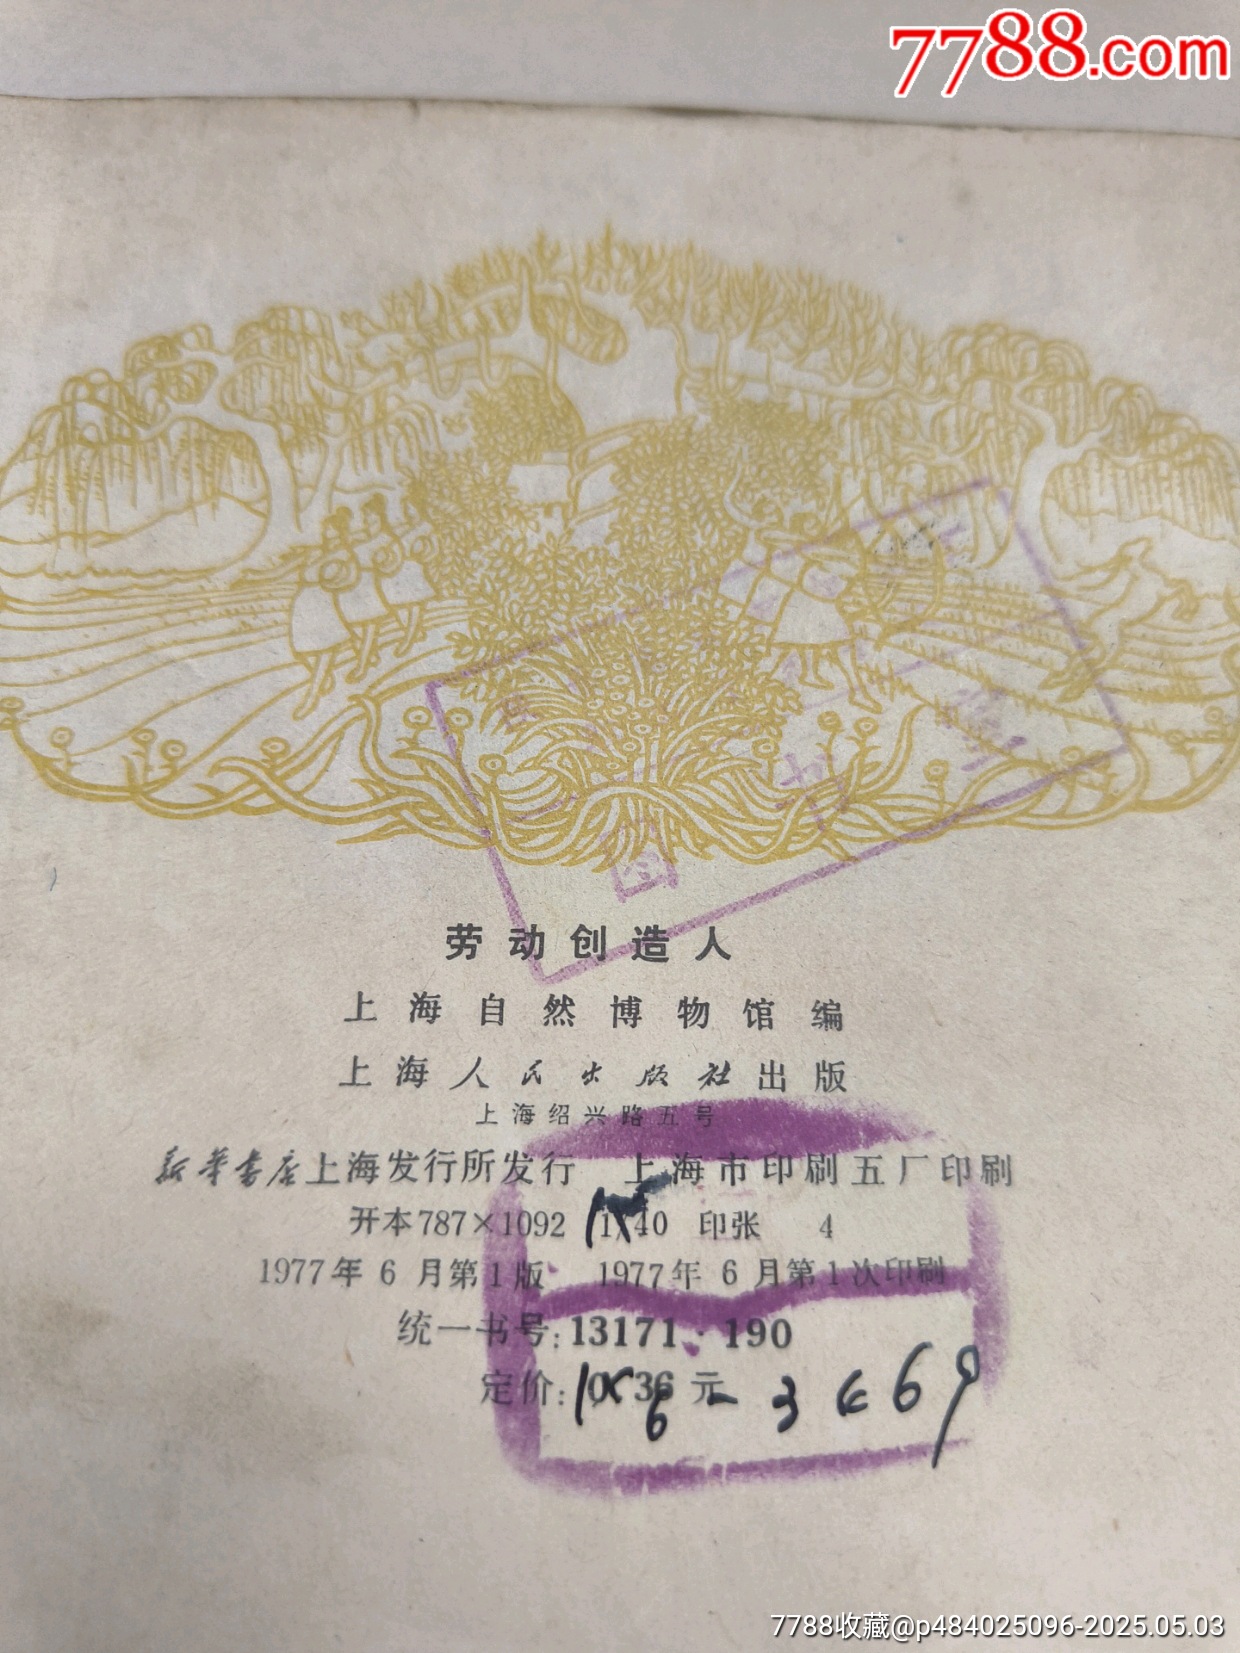 7788.com
劳动创造人
上海自然博物馆编
上海人民出版社出版
上海绍兴路五号
新华书店上海发行所发行 上海市印刷五厂印刷
开本787×1092 1/40 印张 4
1977年6月第1版 1977年6月第1次印刷
统一书号:13171·190
定价:0.36元
7788收藏@p484025096-2025.05.03